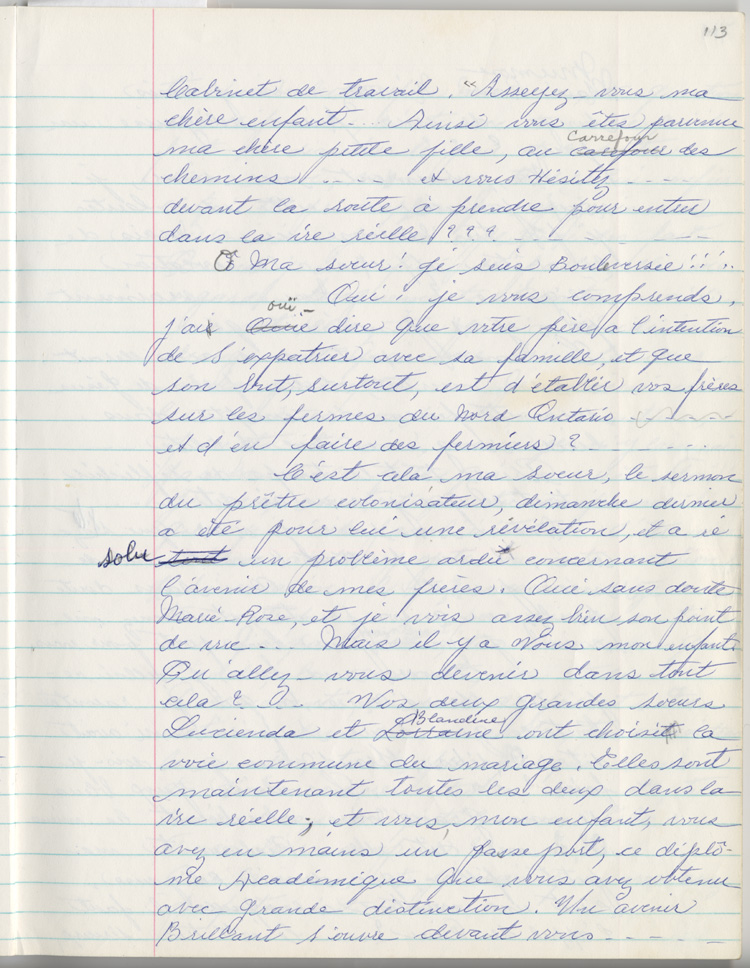 113
Cabinet de travail. "Asseyez-vous ma
chère enfant... Ainsi vous êtes parvenue
Carrefour
ma chère petite fille, au des
chemins .... et vous Hésitez ....
devant la route à prendre pour entrer
dans la vie réelle ???. ....
O Ma soeur! je suis Bouleversée!!!..
Oui! je vous comprends,
ouï-
j'ai Ouie dire que votre père a l'intention
de s'expatrier avec sa famille, et que
son but, surtout, est d'établir vos frères
sur les fermes du Nord Ontario
et d'en faire des fermiers? ....
C'est cela ma soeur, le sermon
du prêtre colonisateur, dimanche dernier
a été pour lui une révélation, et a ré
solu tout un problème ardu concernant
l'avenir de mes frères. Oui sans doute
Marie-Rose, et je vois assez bien son point
de vue... Mais il-y-a Vous mon enfant.
Qu'allez-vous devenir dans tout
cela?... Vos deux grandes soeurs
Blandine
Lucienda et Lorraine ont choisit la
voie commune du mariage. Elles sont
maintenant toutes les deux dans la
vie réelle; et vous, mon enfant, vous
avez en mains un passeport, ce diplô-
me Académique que vous avez obtenu
avec grande distinction. Un avenir
Brillant s'ouvre devant vous ....